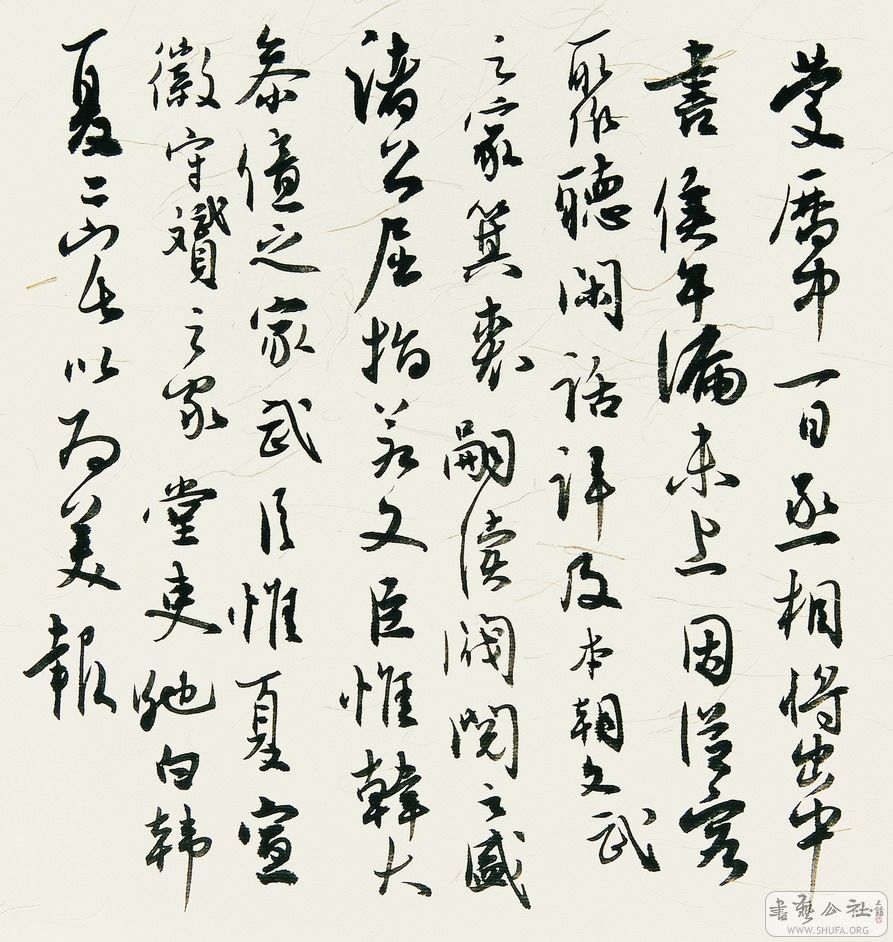 慶曆中一日丞相將出中
書候午漏未上因從容
聚廳閑話評及本朝文武
之家箕裘嗣續閥閱之盛
諸公屈指若文臣惟韓大
參億之家武臣惟夏宣
徽守贇之家堂吏馳白韓
夏二公以為美報
書藝公社
WWW.SHUFA.ORG